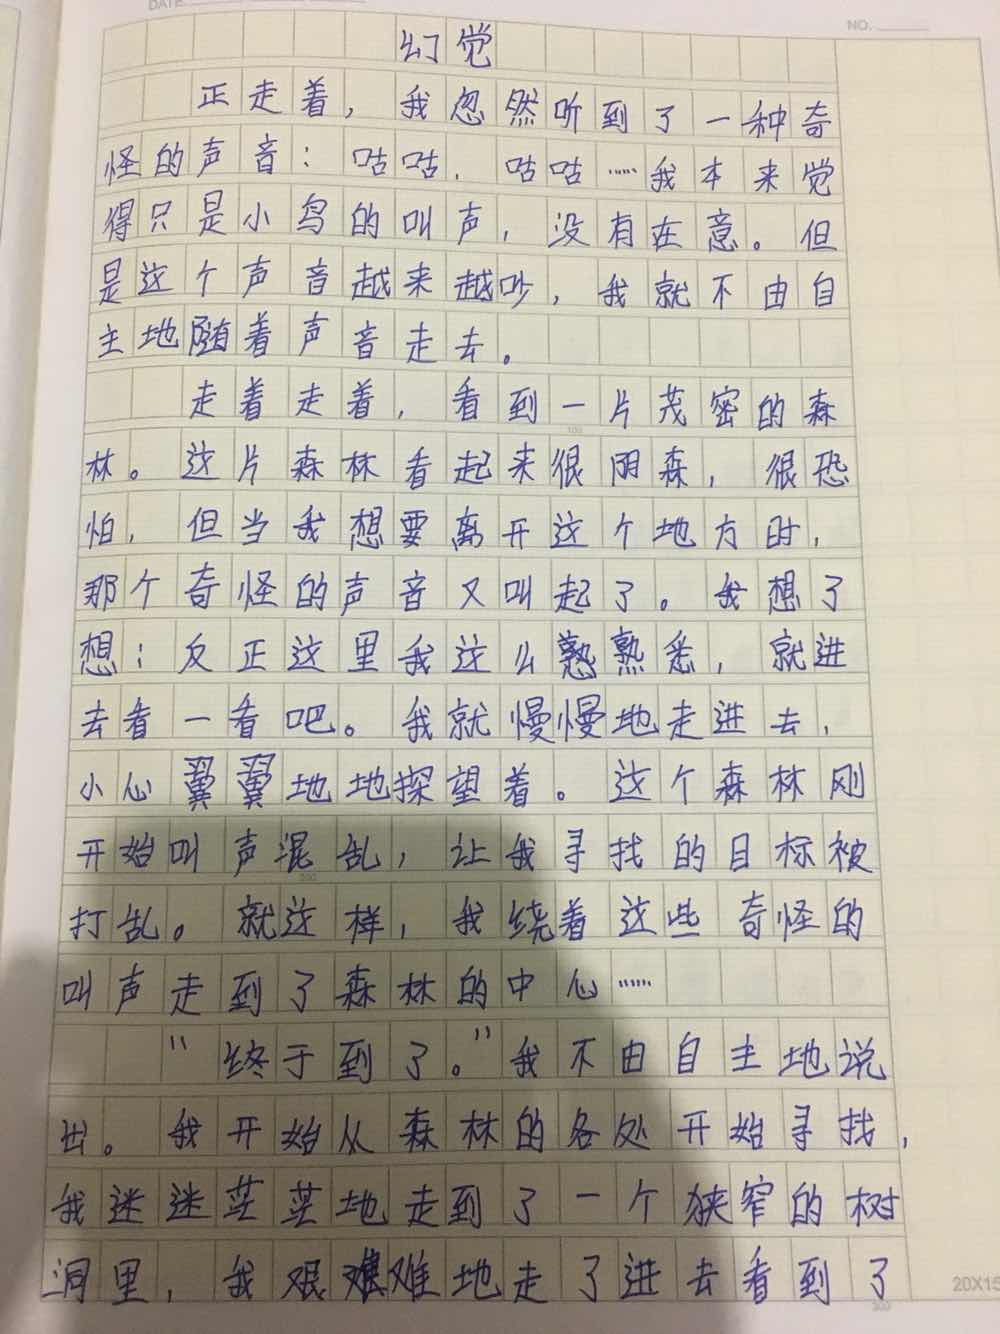 DATE.
NO.
幻觉
正走着，我忽然听到了一种奇
怪的声音：咕咕，咕咕……我本来觉
得只是小鸟的叫声，没有在意。但
是这个声音越来越吵，我就不由自
主地随着声音走去。
走着走着，看到一片茂密的森
100
林。这片森林看起来很阴森，很恐
怕，但当我想要离开这个地方时，
那个奇怪的声音又叫起了。我想了
想：反正这里我这么熟熟悉，就进
去看一看吧。我就慢慢地走进去，
小心翼翼地地探望着。这个森林刚
开始叫声混乱，让我寻找的目标被
200
打乱。就这样，我绕着这些奇怪的
叫声走到了森林的中心……
“终于到了。”我不由自主地说
出。我开始从森林的各处开始寻找，
我迷迷茫茫地走到了一个狭窄的树
洞里，我艰难难地走了进去看到了
20X15
300